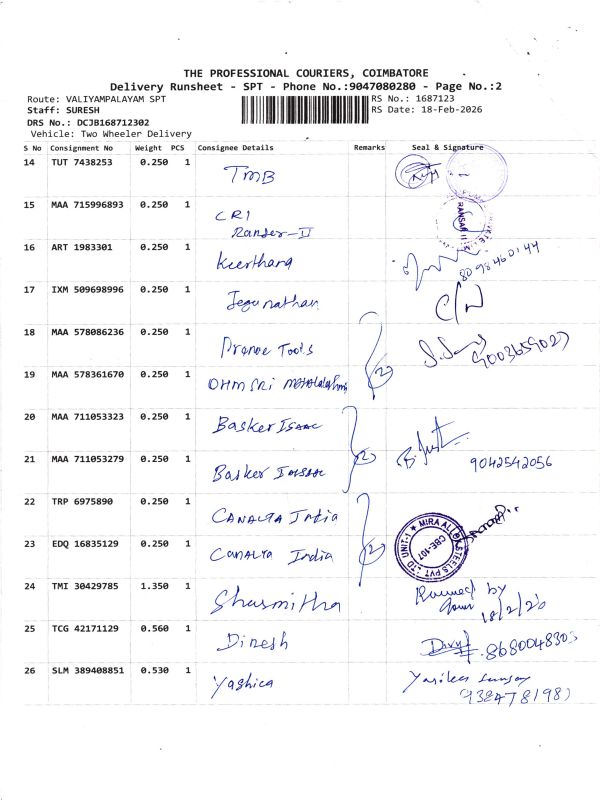 THE PROFESSIONAL COURIERS, COIMBATORE
Delivery Runsheet - SPT - Phone No.:9047080280 - Page No.:2
Route: VALIYAMPALAYAM SPT
RS No.: 1687123
Staff: SURESH
RS Date: 18-Feb-2026
DRS No.: DCJB168712302
Vehicle: Two Wheeler Delivery
S No Consignment No Weight PCS Consignee Details Remarks Seal & Signature
14 TUT 7438253 0.250 1 TMB
15 MAA 715996893 0.250 1 CRI
Ranser-II
16 ART 1983301 0.250 1 Keerthana 8098460144
17 IXM 509698996 0.250 1 Jegunathan
18 MAA 578086236 0.250 1 Pranve Tools 9003659027
19 MAA 578361670 0.250 1 OHM SRI (2)
20 MAA 711053323 0.250 1 Basker Isaac
21 MAA 711053279 0.250 1 Basker (2) 9042542056
22 TRP 6975890 0.250 1 CANALYA India
23 EDQ 16835129 0.250 1 CANALYA India (2) UNIT-1 MIRA ALLOY STEELS PVT LTD CBE-107
24 TMI 30429785 1.350 1 Shasmitha by
18/2/26
25 TCG 42171129 0.560 1 Dinesh 8680048303
26 SLM 389408851 0.530 1 Yashica